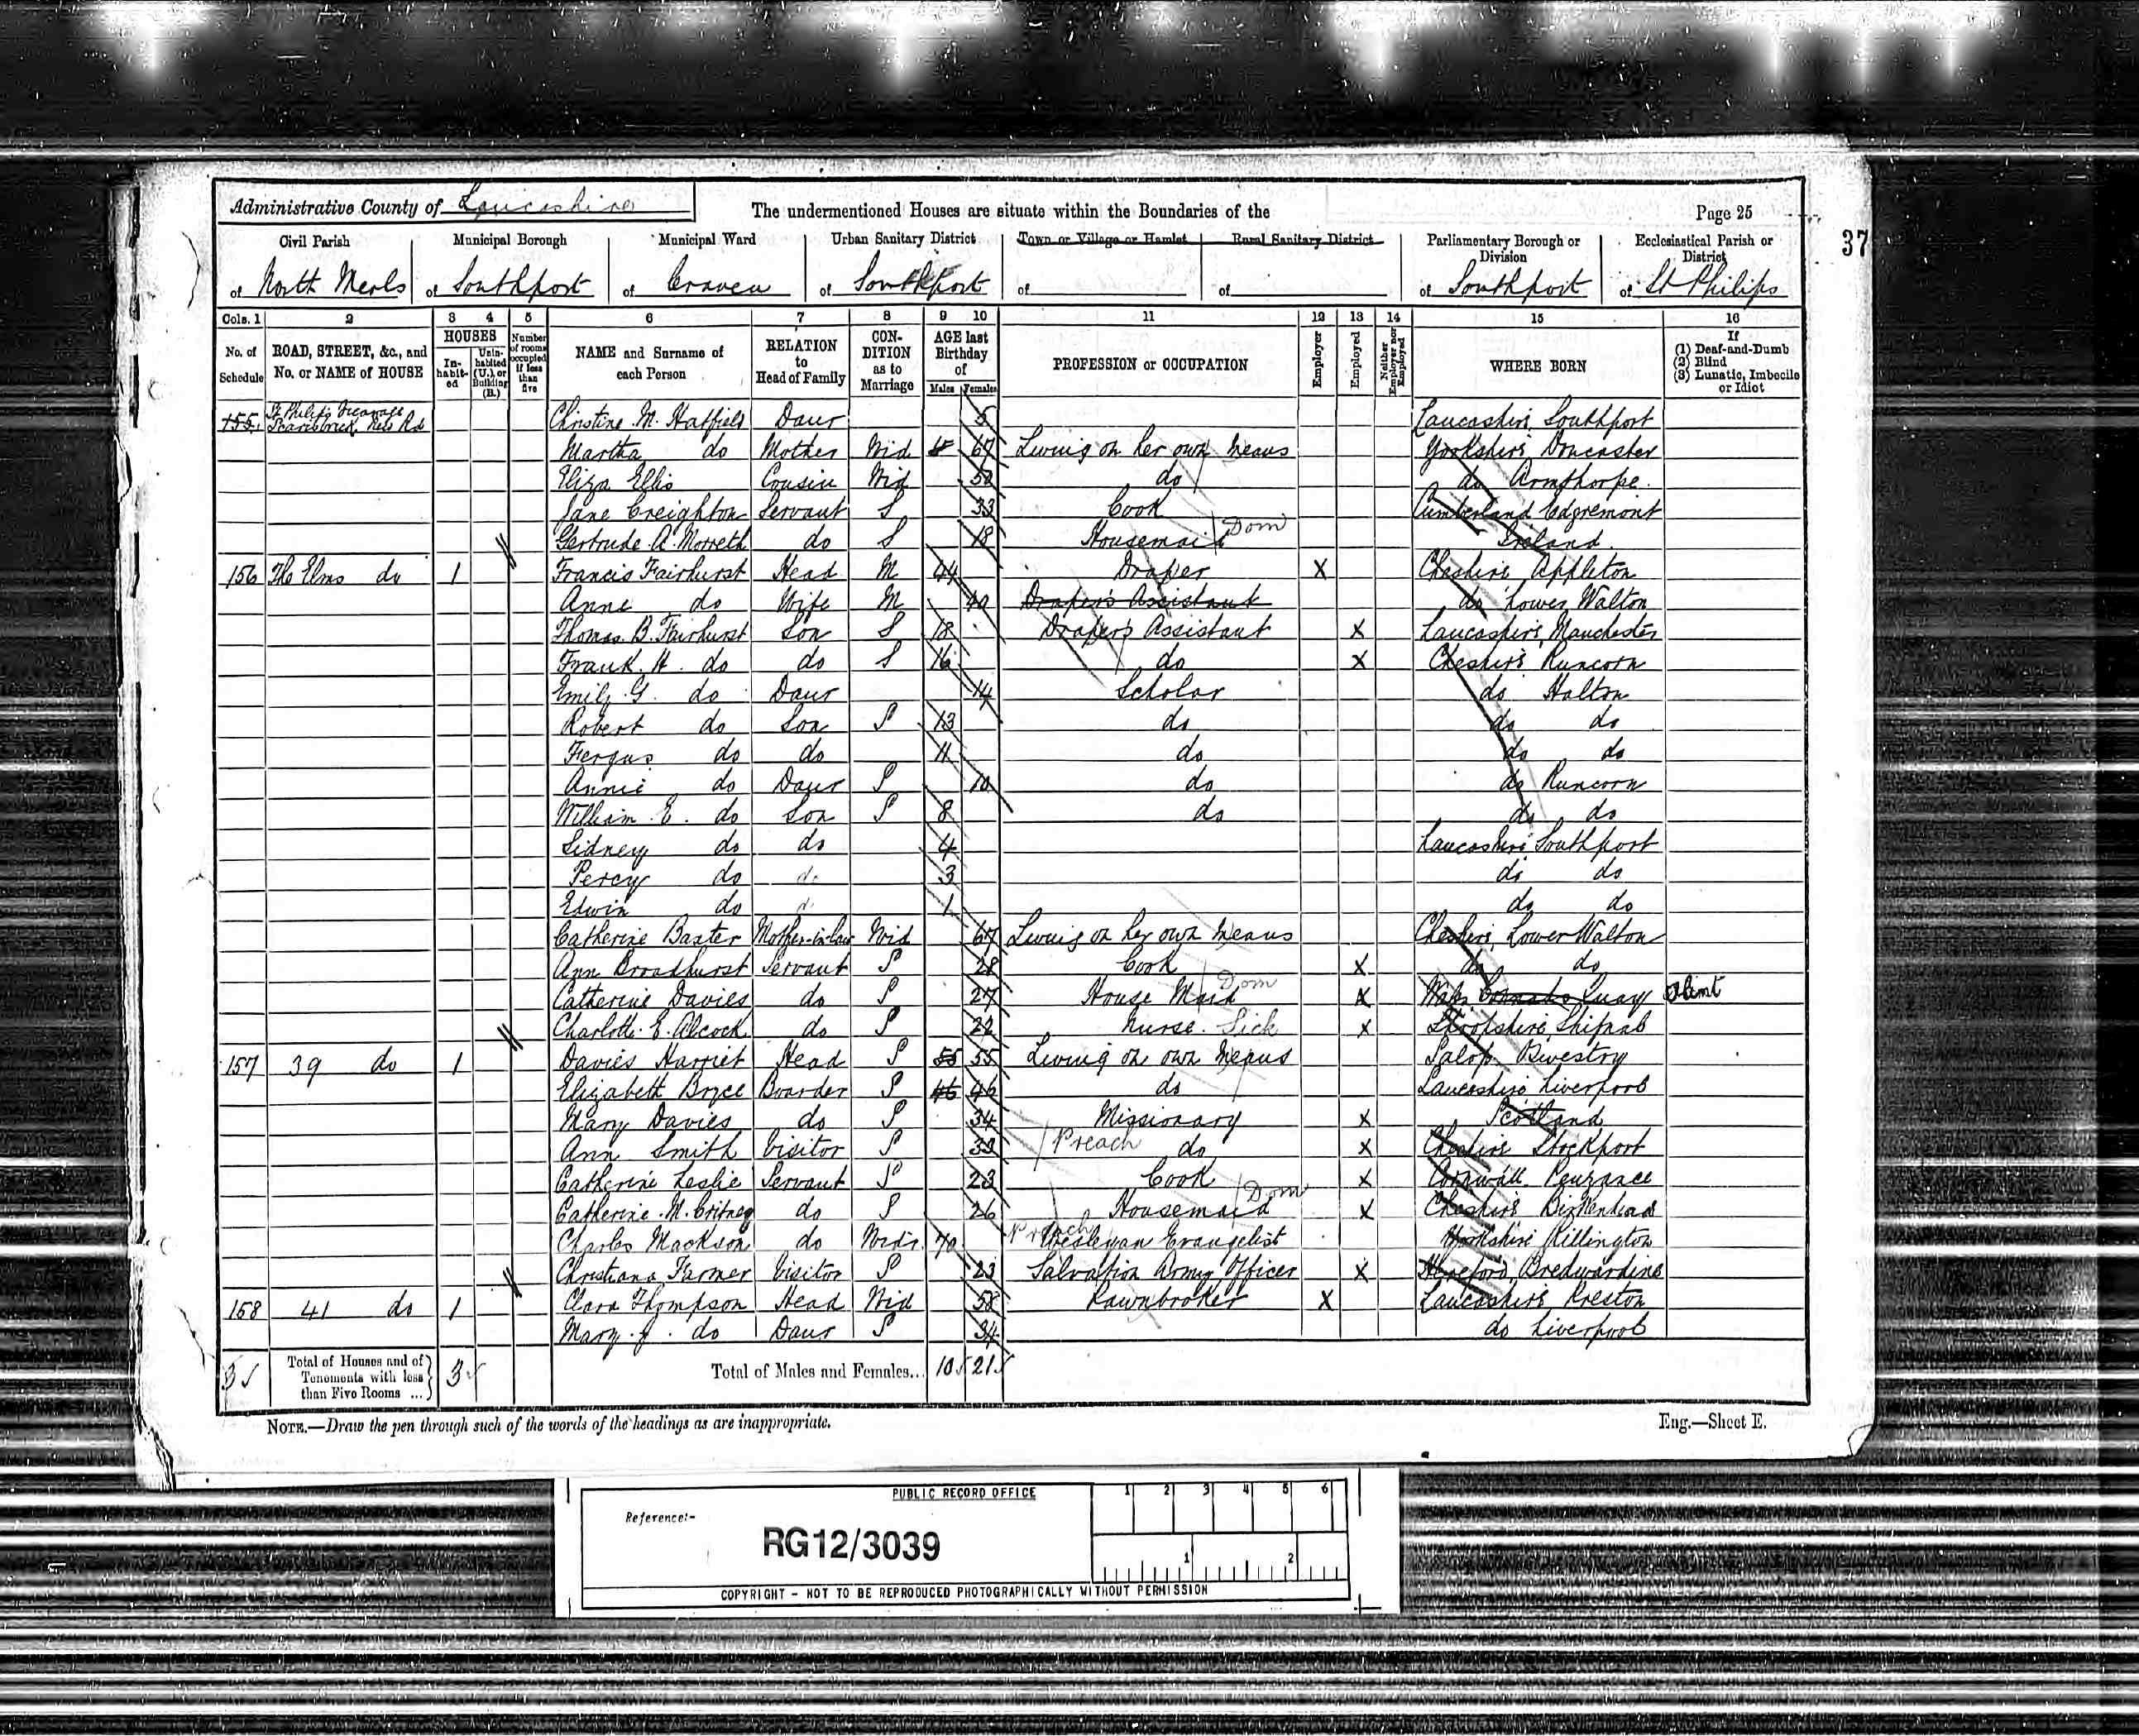 Administrative County of Lancashire
The undermentioned Houses are situate within the Boundaries of the
Page 25
37
Civil Parish Municipal Borough Municipal Ward Urban Sanitary District Town or Village or Hamlet Rural Sanitary District Parliamentary Borough or Division Ecclesiastical Parish or District
of North Meols of Southport of Craven of Southport of of of Southport of St Philips
Cols. 1 2 3 4 5 6 7 8 9 10 11 12 13 14 15 16
No. of Schedule ROAD, STREET, &c., and No. or NAME of HOUSE HOUSES Inhabited Uninhabited (U.), or Building (B.) Number of rooms occupied if less than five NAME and Surname of each Person RELATION to Head of Family CONDITION as to Marriage AGE last Birthday of Males Females PROFESSION or OCCUPATION Employer Employed Neither Employer nor Employed WHERE BORN If (1) Deaf-and-Dumb (2) Blind (3) Lunatic, Imbecile or Idiot
155 St Philips Vicarage Scarisbrick New Rd Christine M. Hatfield Daur 5 Lancashire Southport
Martha do Mother Wid 67 Living on her own means Yorkshire Doncaster
Eliza Ellis Cousin Wid 50 do do Armthorpe
Jane Creighton Servant S 33 Cook Cumberland Edgremont
Gertrude A. Morreth do S 18 Housemaid Dom Ireland
156 The Elms do 1 Francis Fairhurst Head M 44 Draper X Cheshire Appleton
Anne do Wife M 40 Draper's Assistant do Lower Walton
Thomas B. Fairhurst Son S 18 Draper's Assistant X Lancashire, Manchester
Frank H. do do S 16 do X Cheshire Runcorn
Emily G. do Daur 14 Scholar do Halton
Robert do Son S 13 do do do
Fergus do do 11 do do do
Annie do Daur S 10 do do Runcorn
William E. do Son S 8 do do do
Sidney do do 4 Lancashire Southport
Percy do do 3 do do
Edwin do d. 1 do do
Catherine Baxter Mother-in-law Wid 67 Living on her own means Cheshire, Lower Walton
Ann Broadhurst Servant S 28 Cook X do do
Catherine Davies do S 27 House Maid Dom X Wales Quay Flint
Charlotte E. Alcock do S 22 Nurse Sick X Shropshire, Shifnal
157 39 do 1 Davies Harriet Head S 55 55 Living on own means Salop Oswestry
Elizabeth Bryce Boarder S 46 46 do Lancashire Liverpool
Mary Davies do S 34 Missionary X Scotland
Ann Smith Visitor S 33 Preach do X Cheshire Stockport
Catherine Leslie Servant S 23 Cook X Cornwall Penzance
Catherine M. Critney do S 26 Housemaid Dom X Cheshire Birkenhead
Charles Mackson do Widr. 70 Preach Wesleyan Evangelist Yorkshire Rillington
Christiana Farmer Visitor S 23 Salvation Army Officer X Hereford, Bredwardine
158 41 do 1 Clara Thompson Head Wid 58 Pawnbroker X Lancashire Preston
Mary J. do Daur S 34 do Liverpool
3 Total of Houses and of Tenements with less than Five Rooms ... 3 Total of Males and Females... 10 21
NOTE.—Draw the pen through such of the words of the headings as are inappropriate.
Eng.—Sheet E.
PUBLIC RECORD OFFICE
1 2 3 4 5 6
Reference:-
RG12/3039
1 2
COPYRIGHT - NOT TO BE REPRODUCED PHOTOGRAPHICALLY WITHOUT PERMISSION